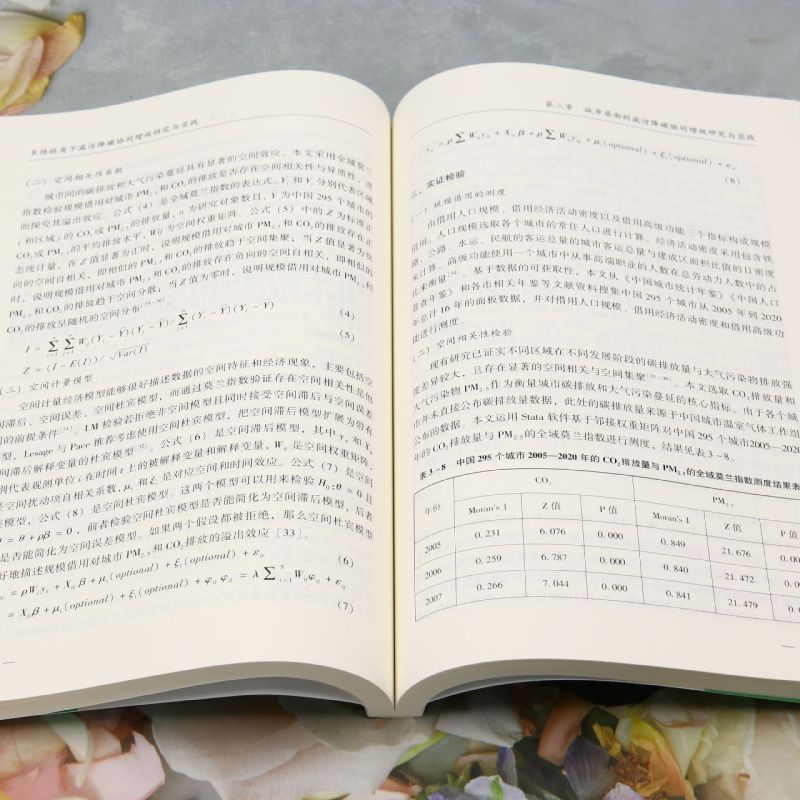 多维视角下减污降碳协同增效研究与实践
(二) 空间相关性系数
城市间的碳排放和大气污染蔓延具有显著的空间效应。本文采用全域莫兰
指数检验规模借用对城市 PM2.5和 CO2的排放是否存在空间相关性与异质性，进
而探究其溢出效应。公式（4）是全域莫兰指数的表达式。Yi 和 Yj 分别代表区域
i 和区域 j 的 CO2或 PM2.5的排放量，n 为研究对象数目，Ȳ为中国 295 个城市的
CO2或 PM2.5的平均排放水平，Wij为空间权重矩阵。公式（5）中的 Z 为标准正
态统计量，在 Z 值显著为正时，说明规模借用对城市 PM2.5和 CO2的排放存在正
向的空间自相关，即相似的 PM2.5和 CO2的排放趋于空间集聚；当 Z 值显著为负
时，说明规模借用对城市 PM2.5和 CO2的排放存在负向的空间自相关，即相似的
PM2.5和 CO2的排放趋于空间分散；当 Z 值为零时，说明规模借用对城市 PM2.5和
CO2的排放呈随机的空间分布[29-30]。
(4)
Z = (I - E(I)) / √Var(I) (5)
(二) 空间计量模型
空间计量经济模型能够很好描述数据的空间特征和经济现象，主要包括空
间滞后、空间误差、空间杜宾模型，而通过莫兰指数验证存在空间相关性是他
们的前提条件[31]。LM 检验若拒绝非空间模型且同时接受空间滞后与空间误差
型，Lesage 与 Pace 推荐考虑使用空间杜宾模型，把空间滞后模型扩展为带有
间滞后解释变量的杜宾模型[32]。公式（6）是空间滞后模型，其中 yit 和 Xit
别代表观测单位 i 在时间 t 上的被解释变量和解释变量，Wij是空间权重矩阵，
是空间扰动项自相关系数，μi 和 ξt 是对应空间和时间效应。公式（7）是空间
模型，公式（8）是空间杜宾模型。这两个模型可以用来检验 H0：θ = 0 且
θ + ρβ = 0，前者检验空间杜宾模型是否能简化为空间滞后模型，后者
是否能简化为空间误差模型。如果两个假设都被拒绝，那么空间杜宾模型
好地描述规模借用对城市 PM2.5和 CO2排放的溢出效应［33］。
= ρWijyt + Xitβ + μi(optional) + ξt(optional) + εit (6)
= Xitβ + μi(optional) + ξt(optional) + φit φit = λ∑Ni=1Wijφit + εit
(7)
第三章 城市层面的减污降碳协同增效研究与实践
yit = ρ∑Wijyit + Xitβ + ρ∑Wijyitθ + μi(optional) + ξt(optional) + εit
(8)
三、实证检验
(一) 规模借用的测度
由借用人口规模、借用经济活动密度以及借用高级功能三个指标构成规模
借用。人口规模选取各个城市的常住人口进行计算。经济活动密度采用包含铁
路、公路、水运、民航的客运总量的城市客运总量与建成区面积比值的日密度
来计算。高级功能使用一个城市中从事高端职业的人数在总劳动力人数中的占
比来衡量[34]。基于数据的可获取性，本文从《中国城市统计年鉴》《中国人口
普查年鉴》和各市相关年鉴等文献资料搜集中国 295 个城市从 2005 年到 2020
年总计 16 年的面板数据，并对借用人口规模、借用经济活动密度和借用高级功
能进行测度。
(二) 空间相关性检验
现有研究已证实不同区域在不同发展阶段的碳排放量与大气污染物排放强
度差异较大，且存在显著的空间相关与空间集聚[35-36]。本文选取 CO2排放量和
大气污染物 PM2.5作为衡量城市碳排放和大气污染蔓延的核心指标。由于各个城
市并未直接公布碳排放量数据，此处的碳排放量来源于中国城市温室气体工作组
公布的数据。本文运用 Stata 软件基于邻接权重矩阵对中国 295 个城市2005—2020
年的 CO2排放量与 PM2.5的全域莫兰指数进行测度，结果见表 3-8。
表 3-8 中国 295 个城市 2005—2020 年的 CO2排放量与 PM2.5的全域莫兰指数测度结果表
年份 CO2 PM2.5
Moran's I Z 值 P 值 Moran's I Z 值 P 值
2005 0.231 6.076 0.000 0.849 21.676 0.00
2006 0.259 6.787 0.000 0.840 21.472 0.00
2007 0.266 7.044 0.000 0.841 21.479 0.0